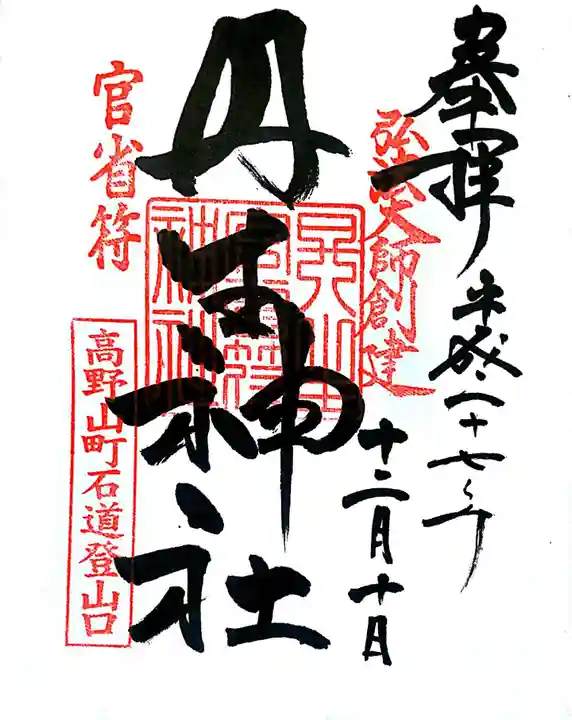 奉拝
平成二十七年
十二月十日
弘法大師創建
丹生神社
官省符
高野山町石道登山口